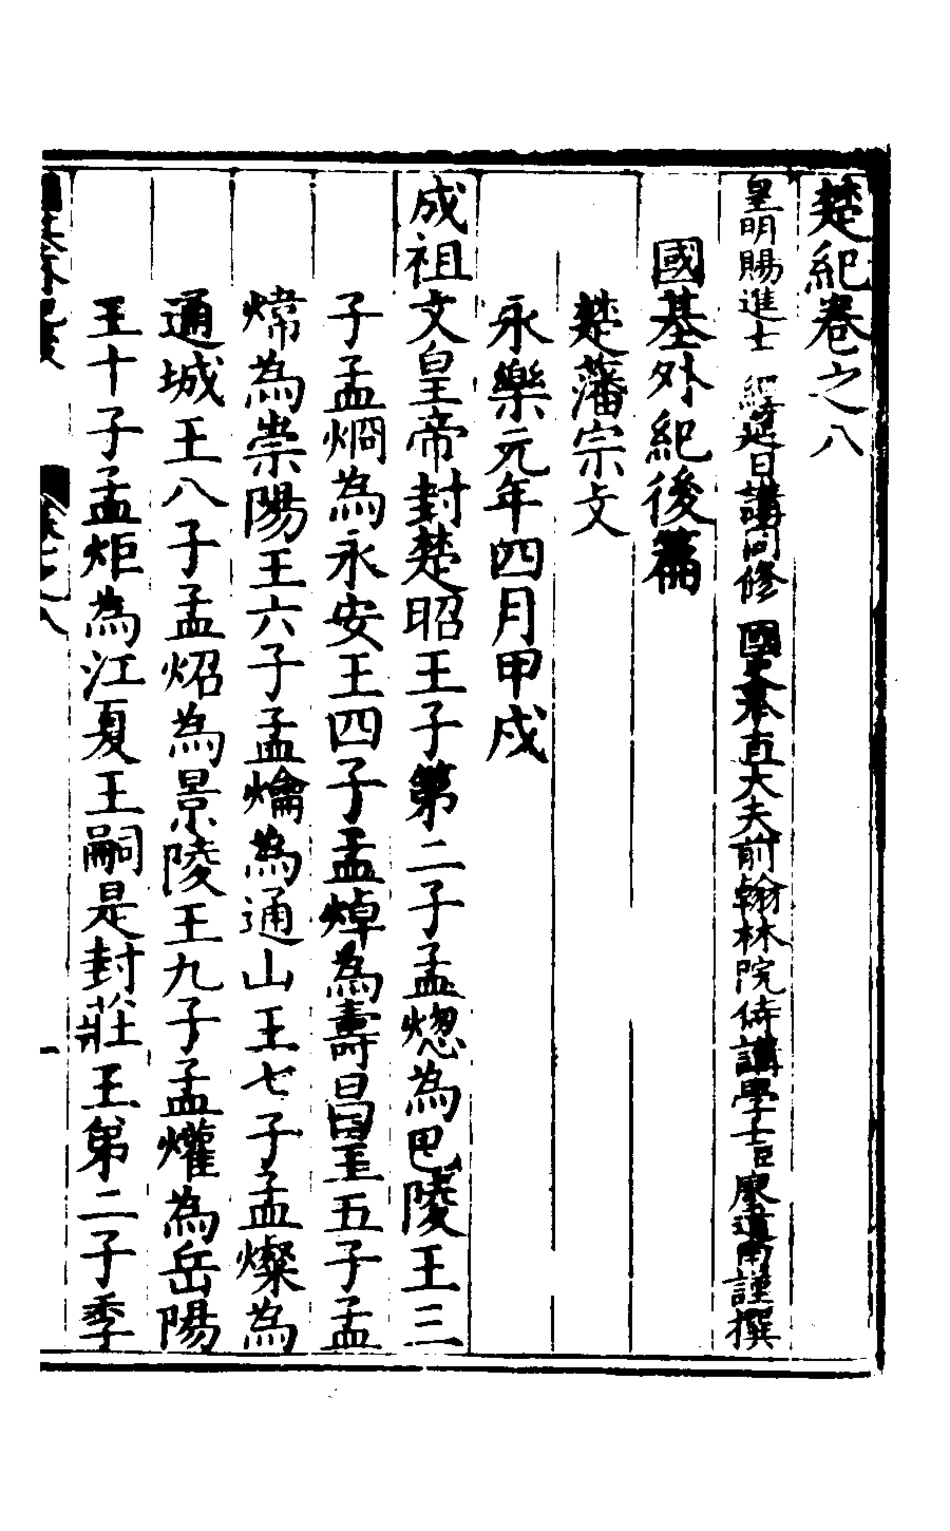 楚紀卷之八
皇明賜進士 經筵日講同修 國史奉直大夫前翰林院侍講學士臣廖道南謹撰
國基外紀後篇
楚藩宗文
永樂元年四月甲戌
成祖文皇帝封楚昭王子第二子孟熜為巴陵王三
子孟烱為永安王四子孟焯為壽昌王五子孟
煒為崇陽王六子孟爚為通山王七子孟燦為
通城王八子孟炤為景陵王九子孟爟為岳陽
王十子孟炬為江夏王嗣是封莊王第二子季
卷之八
一